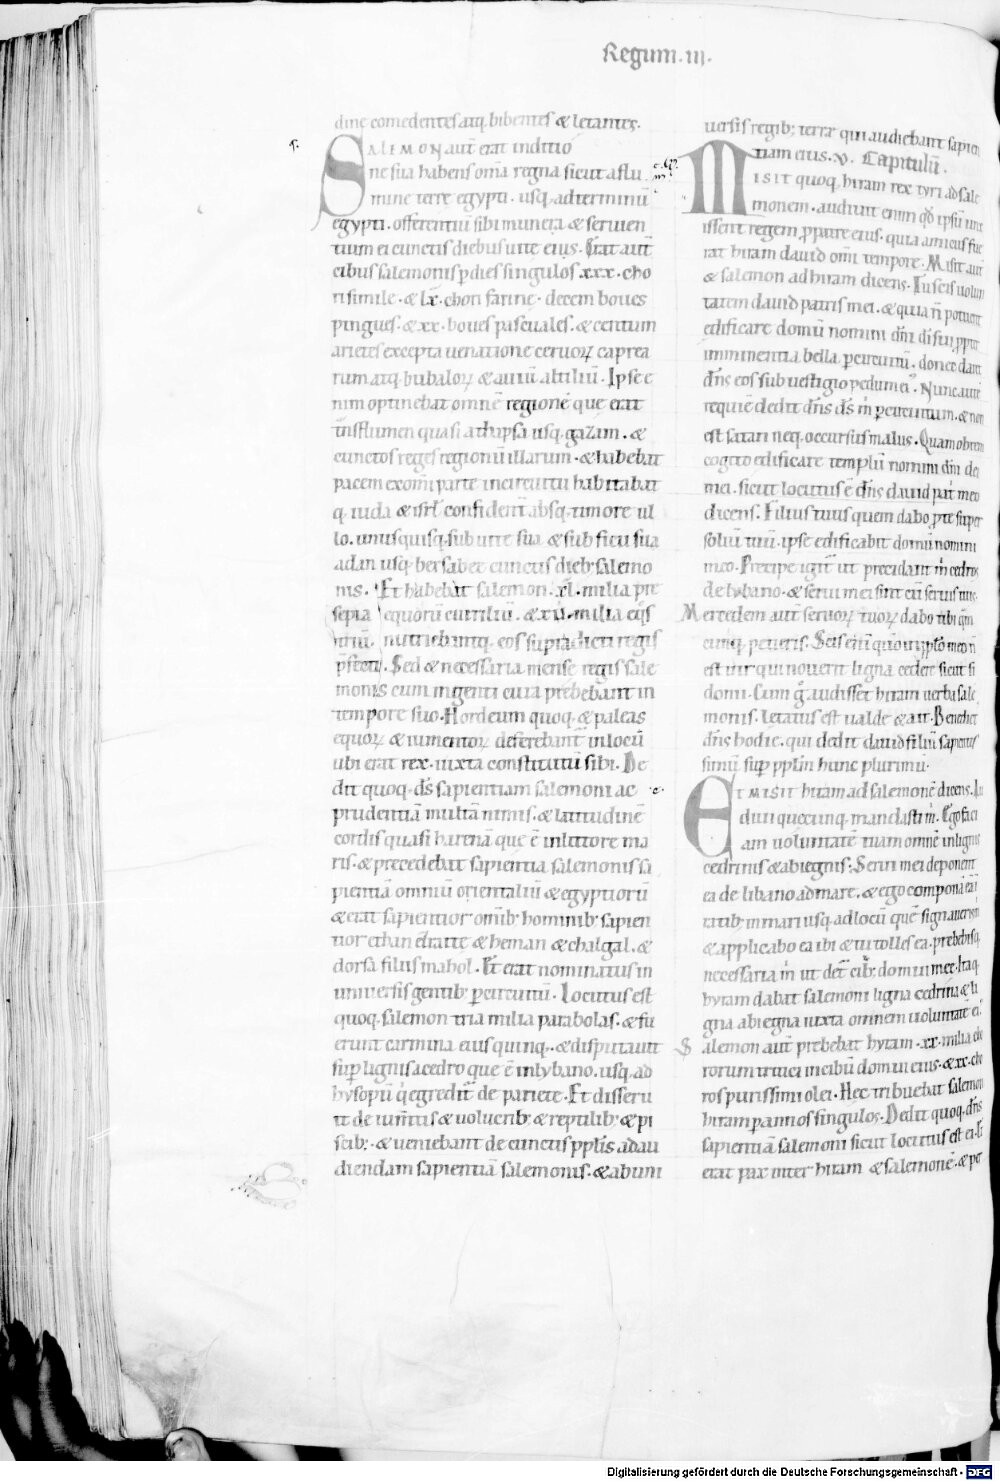 Regum .III.
dine comedentes atq; bibentes & letantes.
SALEMON aut̄ erat inditio
ne sua habens om̄a regna sicut a flu
mine terre egypti. usq; ad terminū
egypti. offerentiū sibi munera & seruien
tium ei cunctis diebus uite eius. Erat aut̄
cibus salemonis p̄ dies singulos .xxx. cho
ri simile. & lx. chori farine. decem boues
pingues. & xx. boues pascuales. & centum
arietes excepta uenatione ceruoꝝ caprea
rum atq; bubaloꝝ & auiū altiliū. Ipse e
nim optinebat omnē regionē que erat
trans flumen quasi a thapsa usq; gazam. &
cunctos reges regionū illarum. & habebat
pacem ex om̄i parte in circuitu. habitabat
q; iuda & isrl̄ confident̄ absq; timore ul
lo. unusquisq; sub uite sua & sub ficu sua
a dan usq; bersabee cunctis dieb; salemo
nis. Et habebat salemon .xl. milia pre
sepia equorū curriliū. & xii. milia eq̄s
triū. nutriebantq; eos supradicti regis
p̄fecti. Sed & necessaria mense regis sale
monis cum ingenti cura prebebant in
tempore suo. Hordeum quoq; & paleas
equoꝝ & iumentoꝝ deferebant in locū
ubi erat rex. iuxta constitutū sibi. De
dit quoq; d̄s sapientiam salemoni ac
prudentiā multā nimis. & latitudinē
cordis quasi harenā que ē in littore ma
ris. & precedebat sapientia salemonis sa
pientiā omniū orientaliū & egyptiorū
& erat sapientior omīb; hominib; sapien
tior ethan ezraite & heman & chalgal. &
dorsa filius mahol. Et erat nominatus in
uniuersis gentib; per circuitū. Locutus est
quoq; salemon tria milia parabolas. & fu
erunt carmina eius quinq;. & disputauit
sup̄ lignis a cedro que ē in lybano. usq; ad
hysopū q̇ egredit̄ de pariete. Et disseru
it de ium̄tis & uolucrib; & reptilib; & pi
scib;. & ueniebant de cunctis pplīs ad au
diendam sapientiā salemonis. & ab uni
uersis regib; terrȩ qui audiebant sapien
tiam eius. V. Capitulū.
MISIT quoq; hiram rex tyri ad sale
monem. audiuit enim qd̄ ipsū unx
issent regem p̄ patre eius. quia amicus fue
rat hiram dauid om̄i tempore. Misit aut̄
& salemon ad hiram dicens. Tu scis uolun
tatem dauid patris mei. & quia n̄ potuerit
edificare domū nomini dn̄i di sui ppter
imminentia bella per circuitū. donec daret
dn̄s eos sub uestigio pedum eiꝰ. Nunc autē
requiē dedit dn̄s d̄s m̄ per circuitum. & non
est satan neq; occursus malus. Quam obrem
cogito edificare templū nomini dn̄i dei
mei. sicut locutus ē dn̄s dauid patri meo
dicens. Filius tuus quem dabo p̄ te super
soliū tuū. ipse edificabit domū nomini
meo. Precipe igit̄ ut precidant m̄ cedros
de lybano. & serui mei sint cū seruis tuis.
Mercedem aut̄ seruoꝝ tuoꝝ dabo tibi qm̄
cumq; petieris. Scis eni quō in pplō meo n̄
est uir qui nouerit ligna cedere sicut si
doni. Cum g̊ audisset hiram uerba sale
monis. letatus est ualde & ait. Benedict
dn̄s hodie. qui dedit dauid filiū sapientis
simū sup̄ pplm̄ hunc plurimū.
ET MISIT hiram ad salemonē dicens. Au
diui quecunq; mandasti m̄. Ego faci
am uoluntatē tuam omnē in lignis
cedrinis & abiegnis. Serui mei deponent
ea de libano ad mare. & ego componā ea ī
ratib; in mari usq; ad locū quē significaueris m̄
& applicabo ea ibi & tu tolles ea. prebebisq;
necessaria m̄ ut det̄ cib; domui mee. Itaq;
hyram dabat salemoni ligna cedrina & li
gna abiegna iuxta omnem uoluntatē eiꝰ.
Salemon aut̄ prebebat hyram .xx. milia cho
rorum tritici in cibū domui eius. & xx. cho
ros purissimi olei. Hec tribuebat salemon
hiram per annos singulos. Dedit quoq; dn̄s
sapientiā salemoni sicut locutus est ei. Et
erat pax inter hiram & salemonē. & per
Digitalisierung gefördert durch die Deutsche Forschungsgemeinschaft - DFG